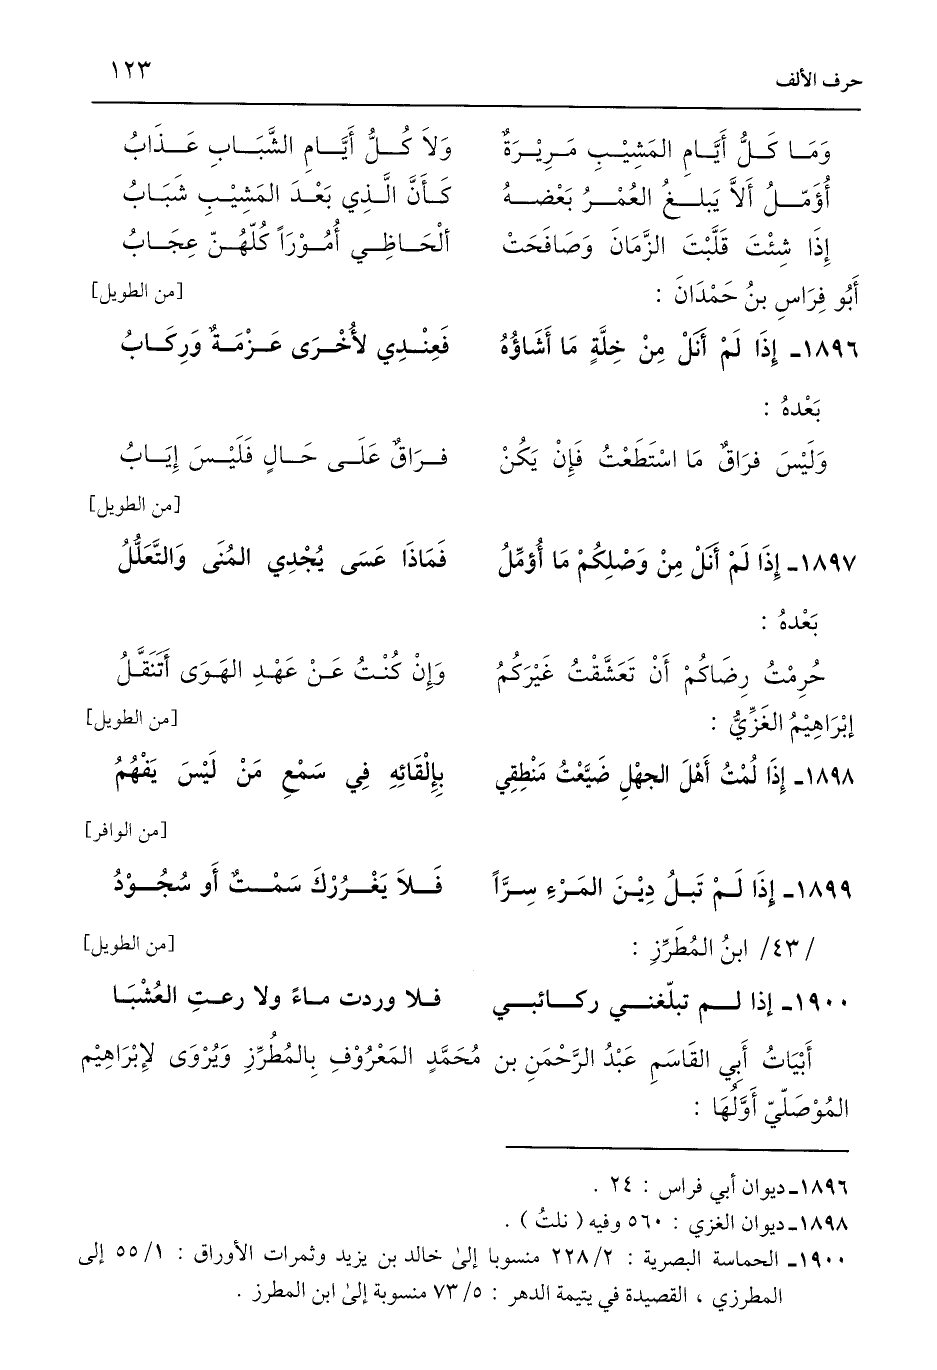 حرف الألف ١٢٣
وَمَـا كَـلُّ أَيَّـامِ المَشِيْـبِ مَـرِيْـرَةٌ وَلاَ كُـلُّ أَيَّـامِ الشَّبَـابِ عَـذَابُ
أُؤَمِّـلُ أَلاَّ يَبلـغُ العُمْـرُ بَعْضـهُ كَـأَنَّ الَّـذِي بَعْـدَ المَشِيْـبِ شَبَـابُ
إِذَا شِئْتَ قَلَّبْتَ الزَّمَانَ وَصَافَحَتْ أَلْحَـاظِـي أُمُـوْرَاً كُلّهُـنّ عِجَـابُ
أَبُو فِرَاسِ بنُ حَمْدَانَ : [من الطويل]
١٨٩٦ـ إِذَا لَمْ أَنَلْ مِنْ خِلَّةٍ مَا أَشَاؤُهُ فَعِنْـدِي لأُخْـرَى عَـزْمَـةٌ وَرِكَـابُ
بَعْدهُ :
وَلَيْسَ فرَاقٌ مَا اسْتَطَعْتُ فَإِنْ يَكُنْ فـرَاقٌ عَلَـى حَـالٍ فَلَيْـسَ إِيَـابُ
[من الطويل]
١٨٩٧ـ إِذَا لَمْ أَنَلْ مِنْ وَصْلِكُمْ مَا أُؤمِّلُ فَمَاذَا عَسَى يُجْدِي المُنَى وَالتَّعَلُّلُ
بَعْدهُ :
حُرِمْتُ رِضَاكُمْ أَنْ تَعَشَّقْتُ غَيْرَكُمْ وَإِنْ كُنْـتُ عَـنْ عَهْـدِ الهَـوَى أَتَنَقَّـلُ
إِبْرَاهِيْمُ الغَزِّيُّ : [من الطويل]
١٨٩٨ـ إِذَا لُمْتُ أَهْلَ الجهْلِ ضَيَّعْتُ مَنْطِقِي بِإِلْقَائِهِ فِي سَمْعِ مَنْ لَيْسَ يَفْهُمُ
[من الوافر]
١٨٩٩ـ إِذَا لَـمْ تَبـلُ دِيْـنَ المَـرْءِ سِـرَّاً فَـلاَ يَغْـرُرْكَ سَمْـتٌ أَو سُجُـوْدُ
/ ٤٣/ ابنُ المُطَرِّزِ : [من الطويل]
١٩٠٠ـ إذا لـم تبلّغنـي ركـائبـي فـلا وردت مـاءً ولا رعـتِ العُشْبَـا
أَبْيَاتُ أَبِي القَاسَمِ عَبْدُ الرَّحْمَنِ بن مُحَمَّدٍ المَعْرُوْفِ بِالمُطُرِّزِ وَيُرْوَى لإِبْرَاهِيْمَ
المُوْصَلِّيّ أَوَّلُهَا :
١٨٩٦ـ ديوان أبي فراس : ٢٤ .
١٨٩٨ـ ديوان الغزي : ٥٦٠ وفيه ( نلتُ ) .
١٩٠٠ـ الحماسة البصرية : ٢٢٨/٢ منسوبا إلىٰ خالد بن يزيد وثمرات الأوراق : ٥٥/١ إلى
المطرزي ، القصيدة في يتيمة الدهر : ٧٣/٥ منسوبة إلىٰ ابن المطرز .